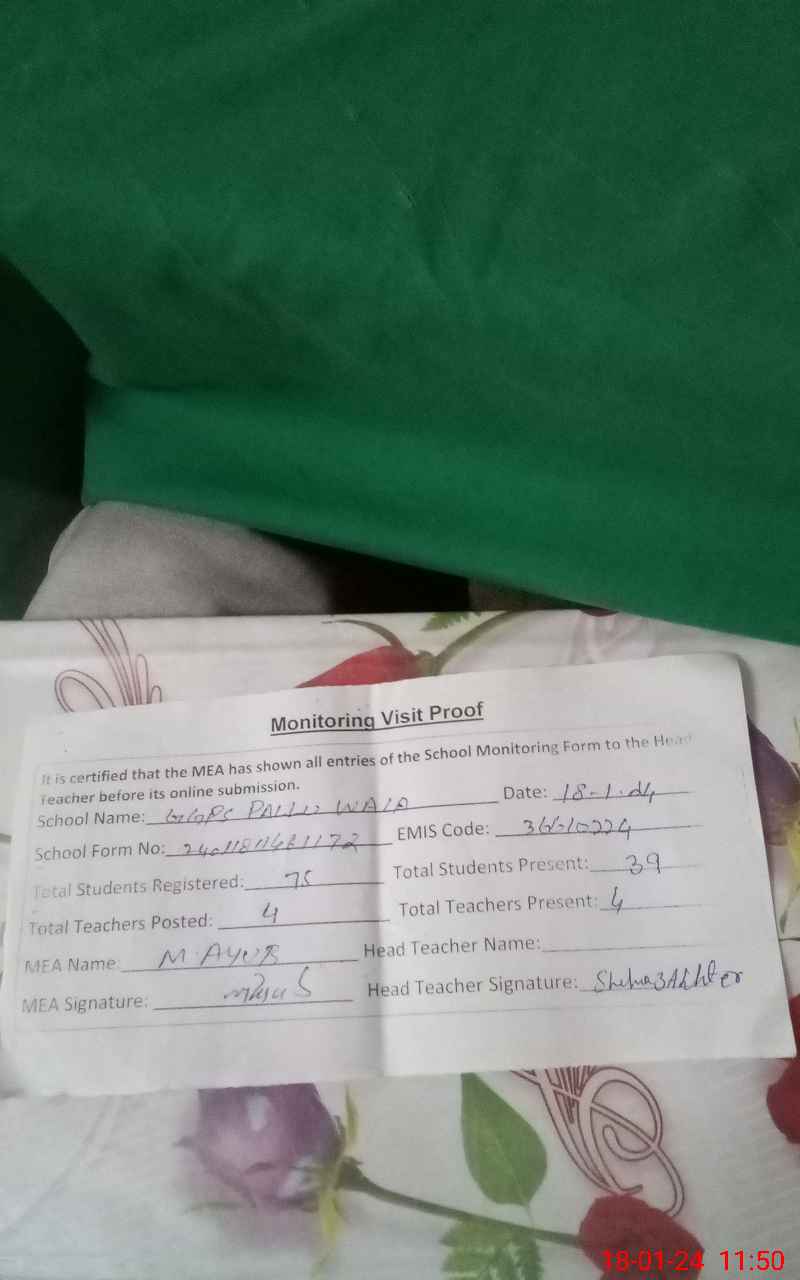 Monitoring Visit Proof
It is certified that the MEA has shown all entries of the School Monitoring Form to the Head
Teacher before its online submission.
School Name: GGPS PALLU WALA Date: 18-1-24
School Form No: EMIS Code:
Total Students Registered: 75 Total Students Present: 39
Total Teachers Posted: 4 Total Teachers Present: 4
MEA Name: M. AYUB Head Teacher Name:
MEA Signature: Head Teacher Signature: Shehnaz Akhter
18-01-24 11:50